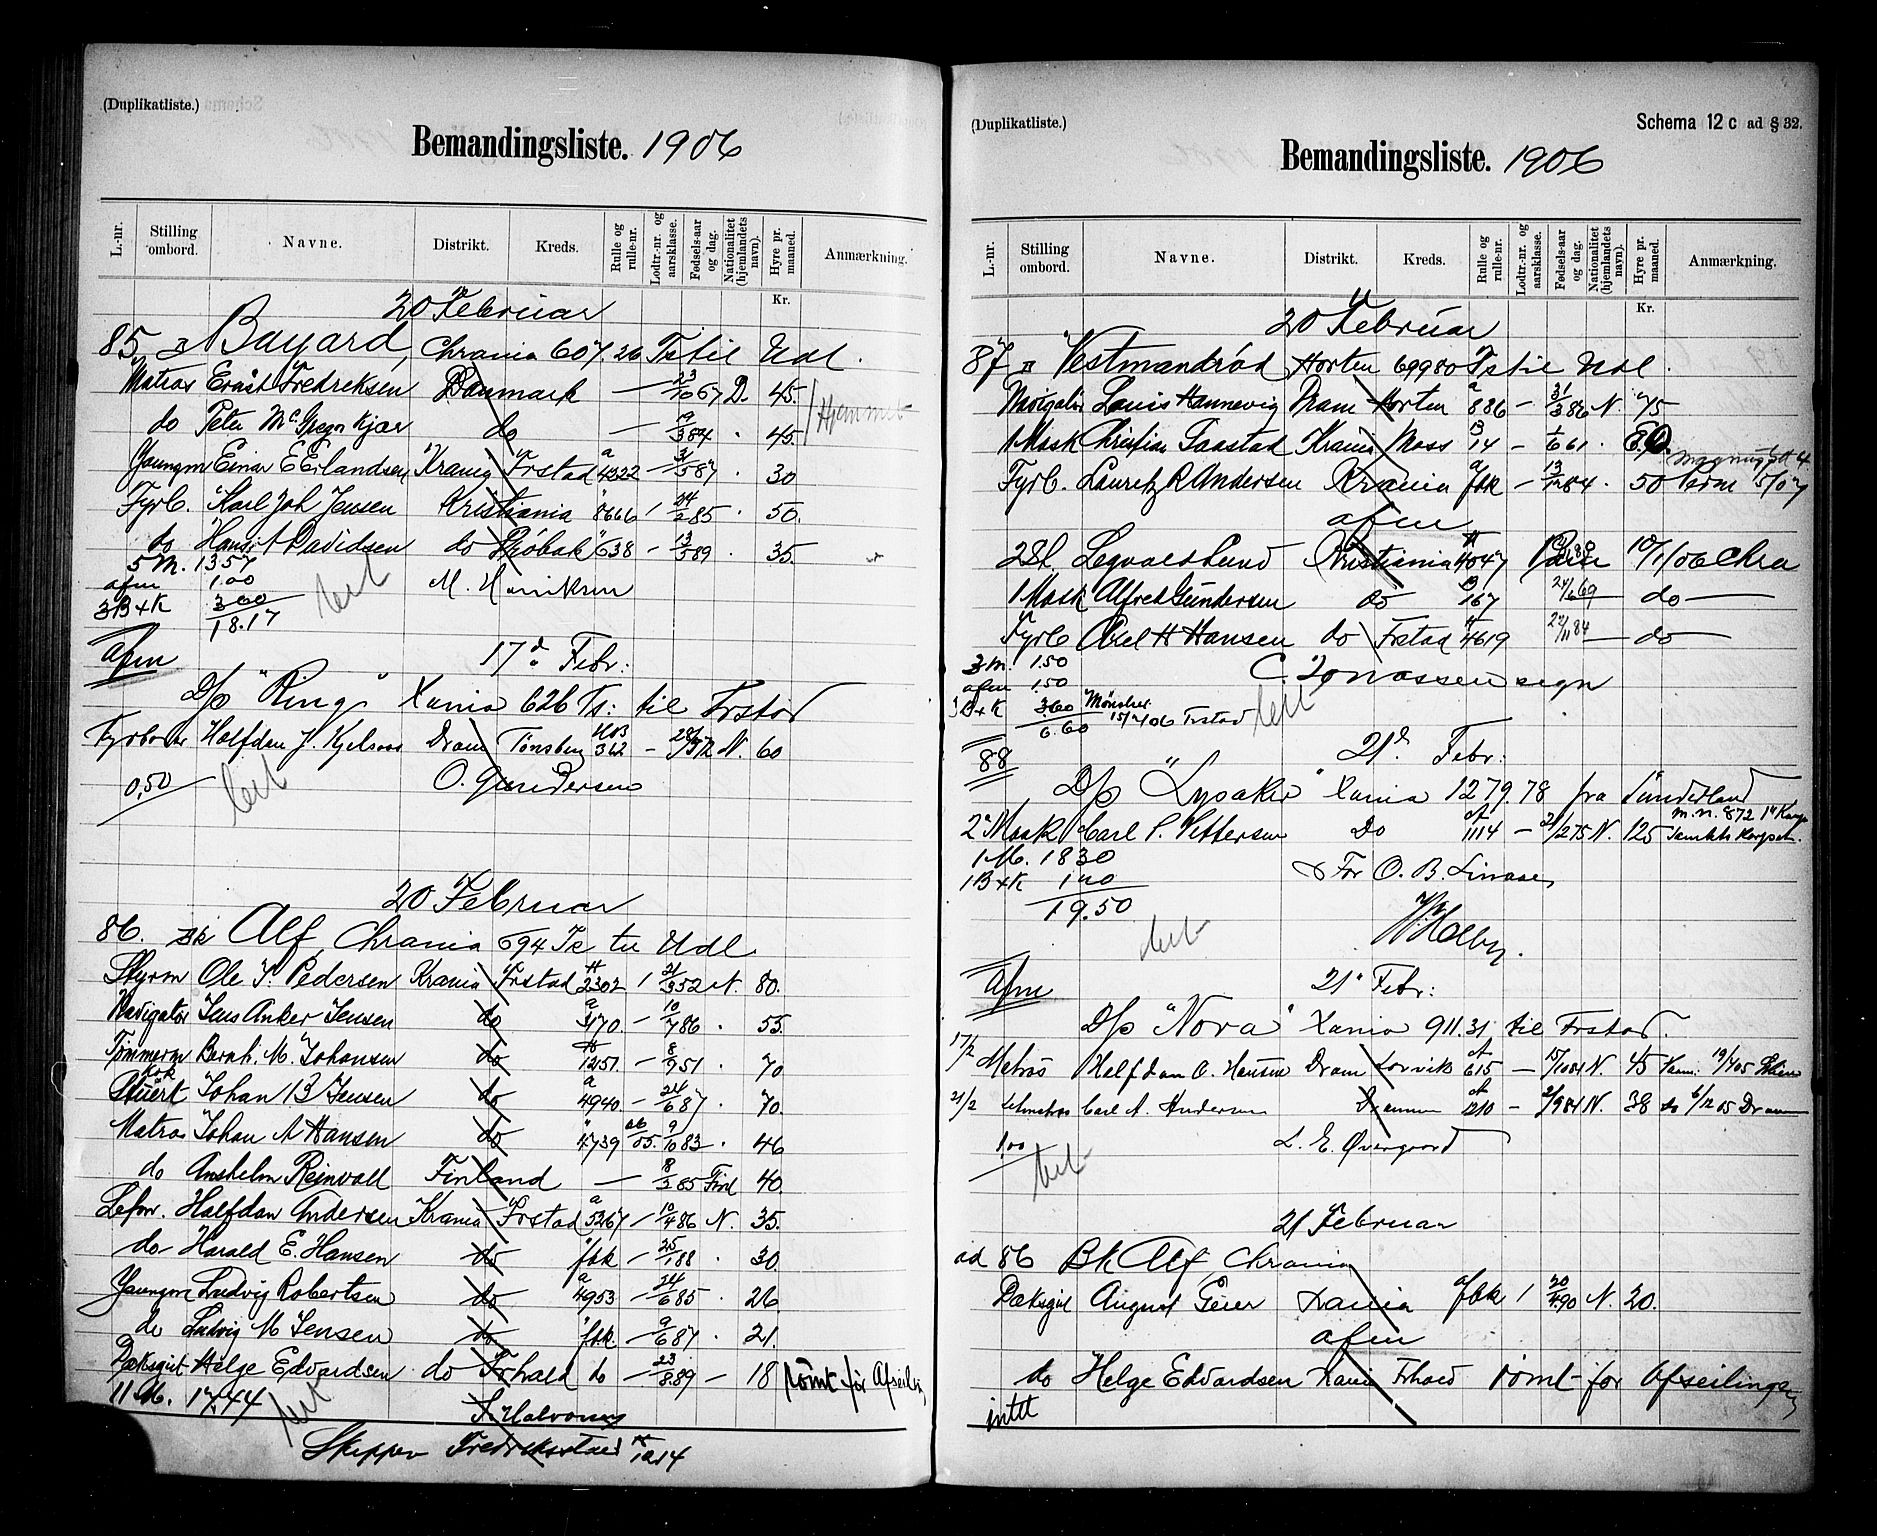 (Duplikatliste.)
Bemandingsliste. 1906
L.-nr. Stilling ombord. Navne. Distrikt. Kreds. Rulle og rulle-nr. Lodtr.-nr. og aarsklasse. Fødsels-aar og dag. Nationalitet (hjemlandets navn). Hyre pr. maaned. Anmærkning.
Kr.
20 Februar
85 Bayard, Chrania 607,26 Ts til Udl.
Matros Ernst Fredreksen Danmark — 23/10 67 D. 45.
do Peter McGregn Kjær do — 19/3 84 . 45.
Youngm Einar E Erlandsen Krania Frstad a 4322 — 31/5 87 . 30
Fyrb. Karl Joh Jensen Kristiania 8666 1 24/2 85 . 50.
do Hans A Davidsen do Drøbak 638 — 13/5 89 . 35.
5 M. 13.57
afm 1.00
3B+K 3.60
18.17
M. Henriksen
afm
17d Febr:
D/p "Ring" Xania 626 Ts: til Frstad
Fyrbøter Halfdan J. Kjelsaas Dram Tønsberg 362 — N. 60
0,50
O. Gundersen
20 Februar
86. Bk Alf Chrania 694 Ts til Udl
Styrm Ole P. Pedersen Krania Frstad 2302 1 21/3 52 N. 80.
Navigatør Jens Anker Jensen do a 3170. — 10/7 86 . 55.
Tømmerm Bernh. M. Johansen do 1251. — 8/9 51 . 70
Kok
Stuert Johan B Jensen do a 4940. — 24/6 87 . 70.
Matros Johan A Hansen do 4739 05. 9/10 83 . 46
do Anshelm Reinvall Finland — 8/2 85 Finl 40.
Letm. Halfdan Andersen Krania Frstad a 5267 — 10/4 86 N. 35.
do Harald E. Hansen do fbk — 25/1 88 . 30.
Youngm Ludvig Robertsen do a 4953 — 24/6 85 . 26
do Ludvig M Jensen do fbk. — 9/6 87 . 21.
Dæksgut Helge Edvardsen do Frhald do — 23/8 89 — 18 rømt før Afseiling
11 M. 17.44
Skipper Fredrikstad 1214
(Duplikatliste.)
Schema 12 c ad § 32.
Bemandingsliste. 1906
L.-nr. Stilling ombord. Navne. Distrikt. Kreds. Rulle og rulle-nr. Lodtr.-nr. og aarsklasse. Fødsels-aar og dag. Nationalitet (hjemlandets navn). Hyre pr. maaned. Anmærkning.
Kr.
20 Februar
87 Vestmandrød Horten 699 80 Ts til Udl.
Navigatør Louis Hannevig Dram Horten a 886 — 31/3 86 N. 75
1 Mask Christian Taastad Krania Moss B 14 — 1/6 61 .
Fyrb. Lauretz R Andersen Krania fbk — 13/1 84 . 50
afm
2 St. Kristiania 4047 10/1/06 Chra
1 Mask Alfred Gundersen do 167 24/6 69 — do —
Fyrb Axel H Hansen do Frstad 4619 22/11 84 — do —
3 M. 1.50
afm 1.50
B+K 3.60
6.60
C. Jonassen sign
88
21d Febr:
D/p "Lysaker" Xania 1279.78 fra Sunderland
2 Mask Carl P. Pettersen Do 1114 — N. 125
1 M. 18 30
1B+K
19.50
For O. B.
21d Febr:
Afm
D/p "Nova" Xania 911.31 til Frstad.
17/2 Matros Halfdan A. Hansen Dram Larvik 615 — N. 45
21/2 Carl A. Andersen Drammen 210 — N. 38 do 6/12 05 Dram
1,00
L. E. Øvergaard
21 Februar
ad 86 Bk Alf Chrania
Dæksgut August Geier Xania fbk 1 20/4 90 N. 20.
afm
do Helge Edvardsen Xania Frhald rømt før Afseilingen
intet